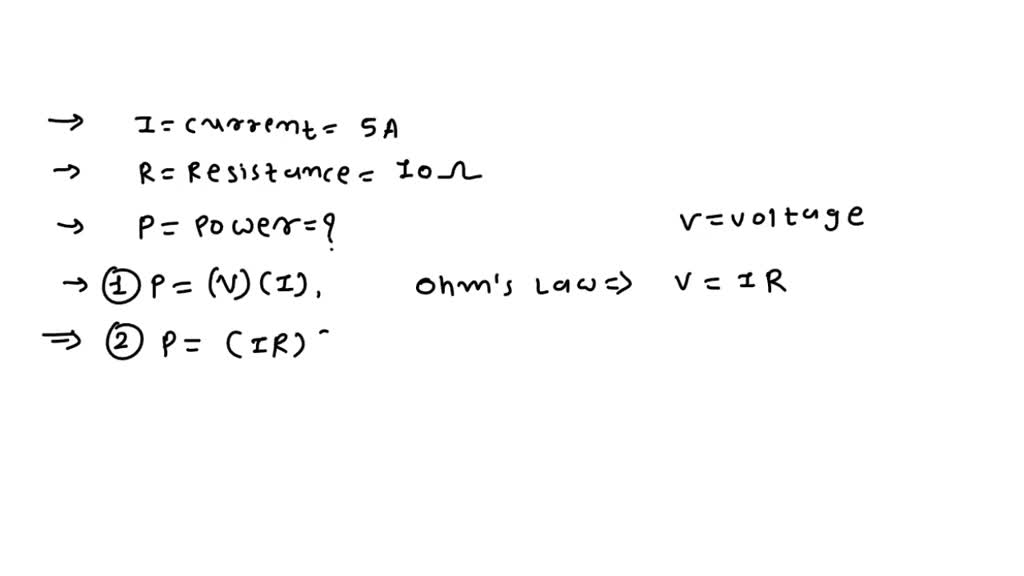 → I = current = 5A
→ R = Resistance = 10Ω
→ P = Power = ?
V = Voltage
→ ① P = (V)(I), Ohm's Law ⇒ V = IR
⇒ ② P = (IR)